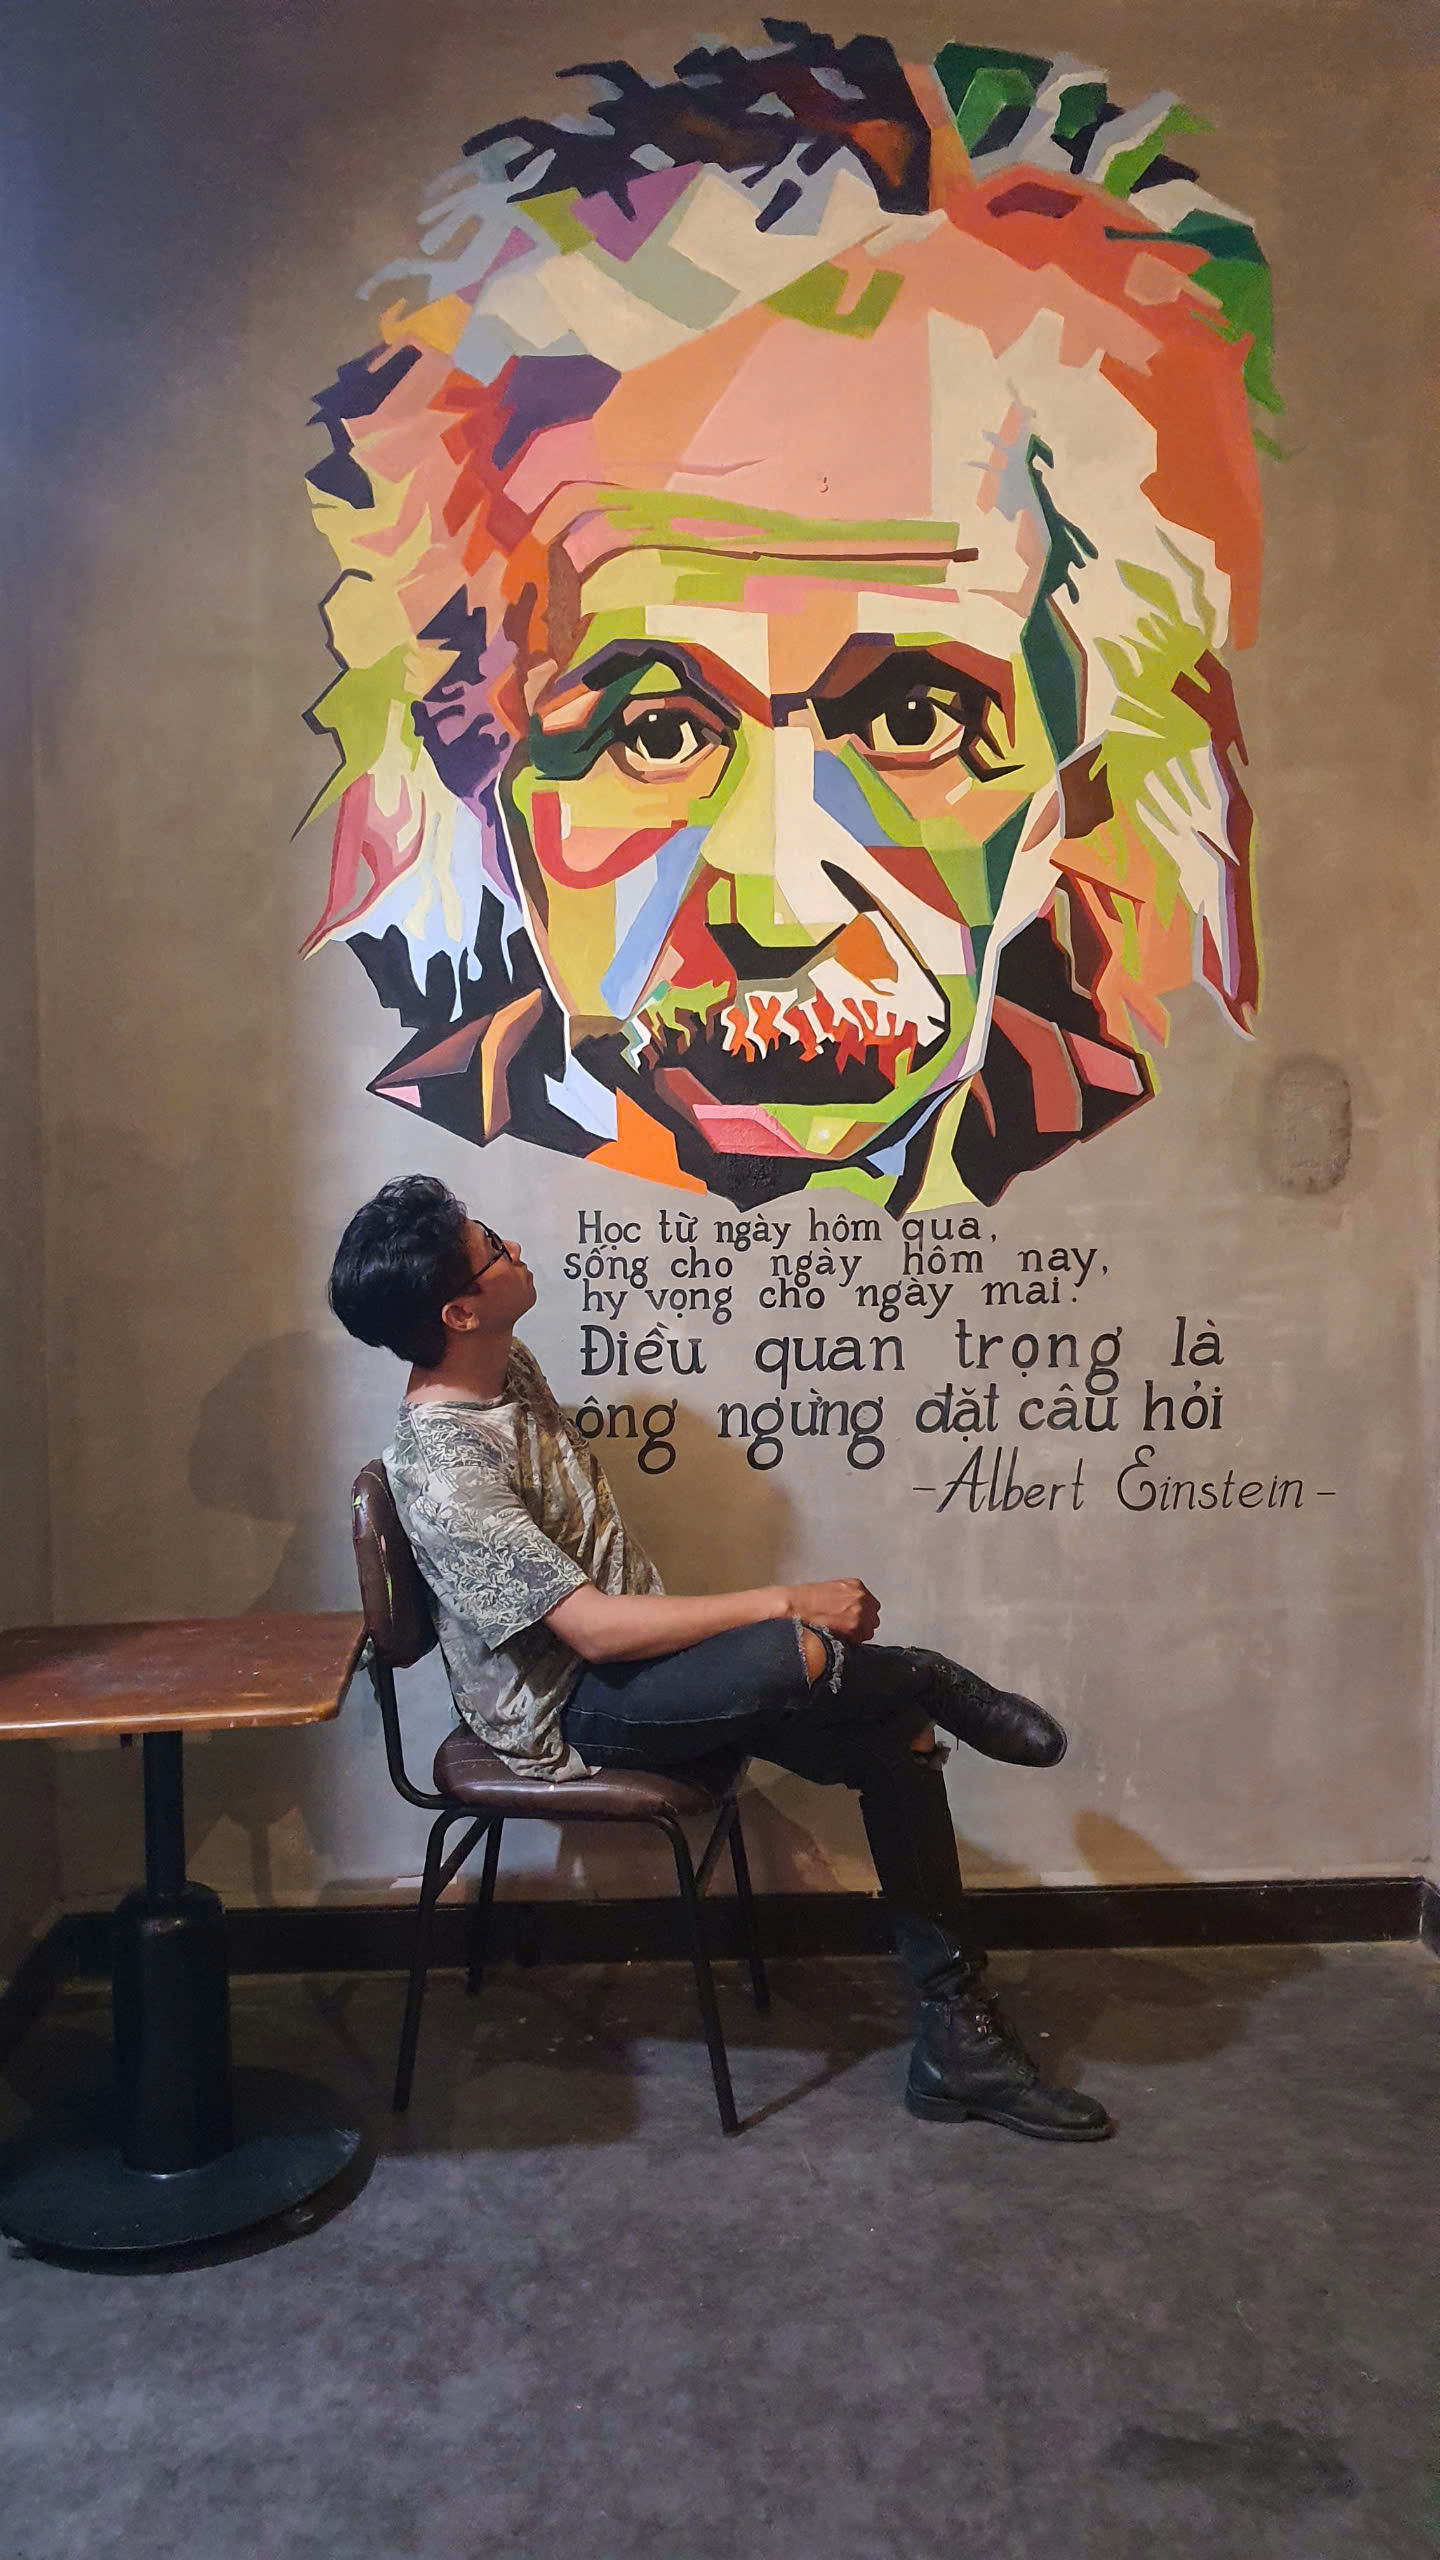 Học từ ngày hôm qua,
sống cho ngày hôm nay,
hy vọng cho ngày mai.
Điều quan trọng là
ông ngừng đặt câu hỏi
-Albert Einstein-